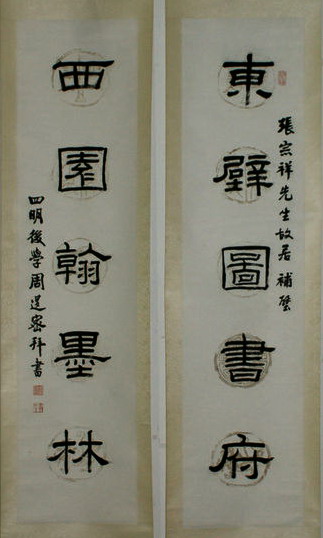 東壁圖書府
張宗祥先生故居 補壁
西園翰墨林
四明後學周退密拜書